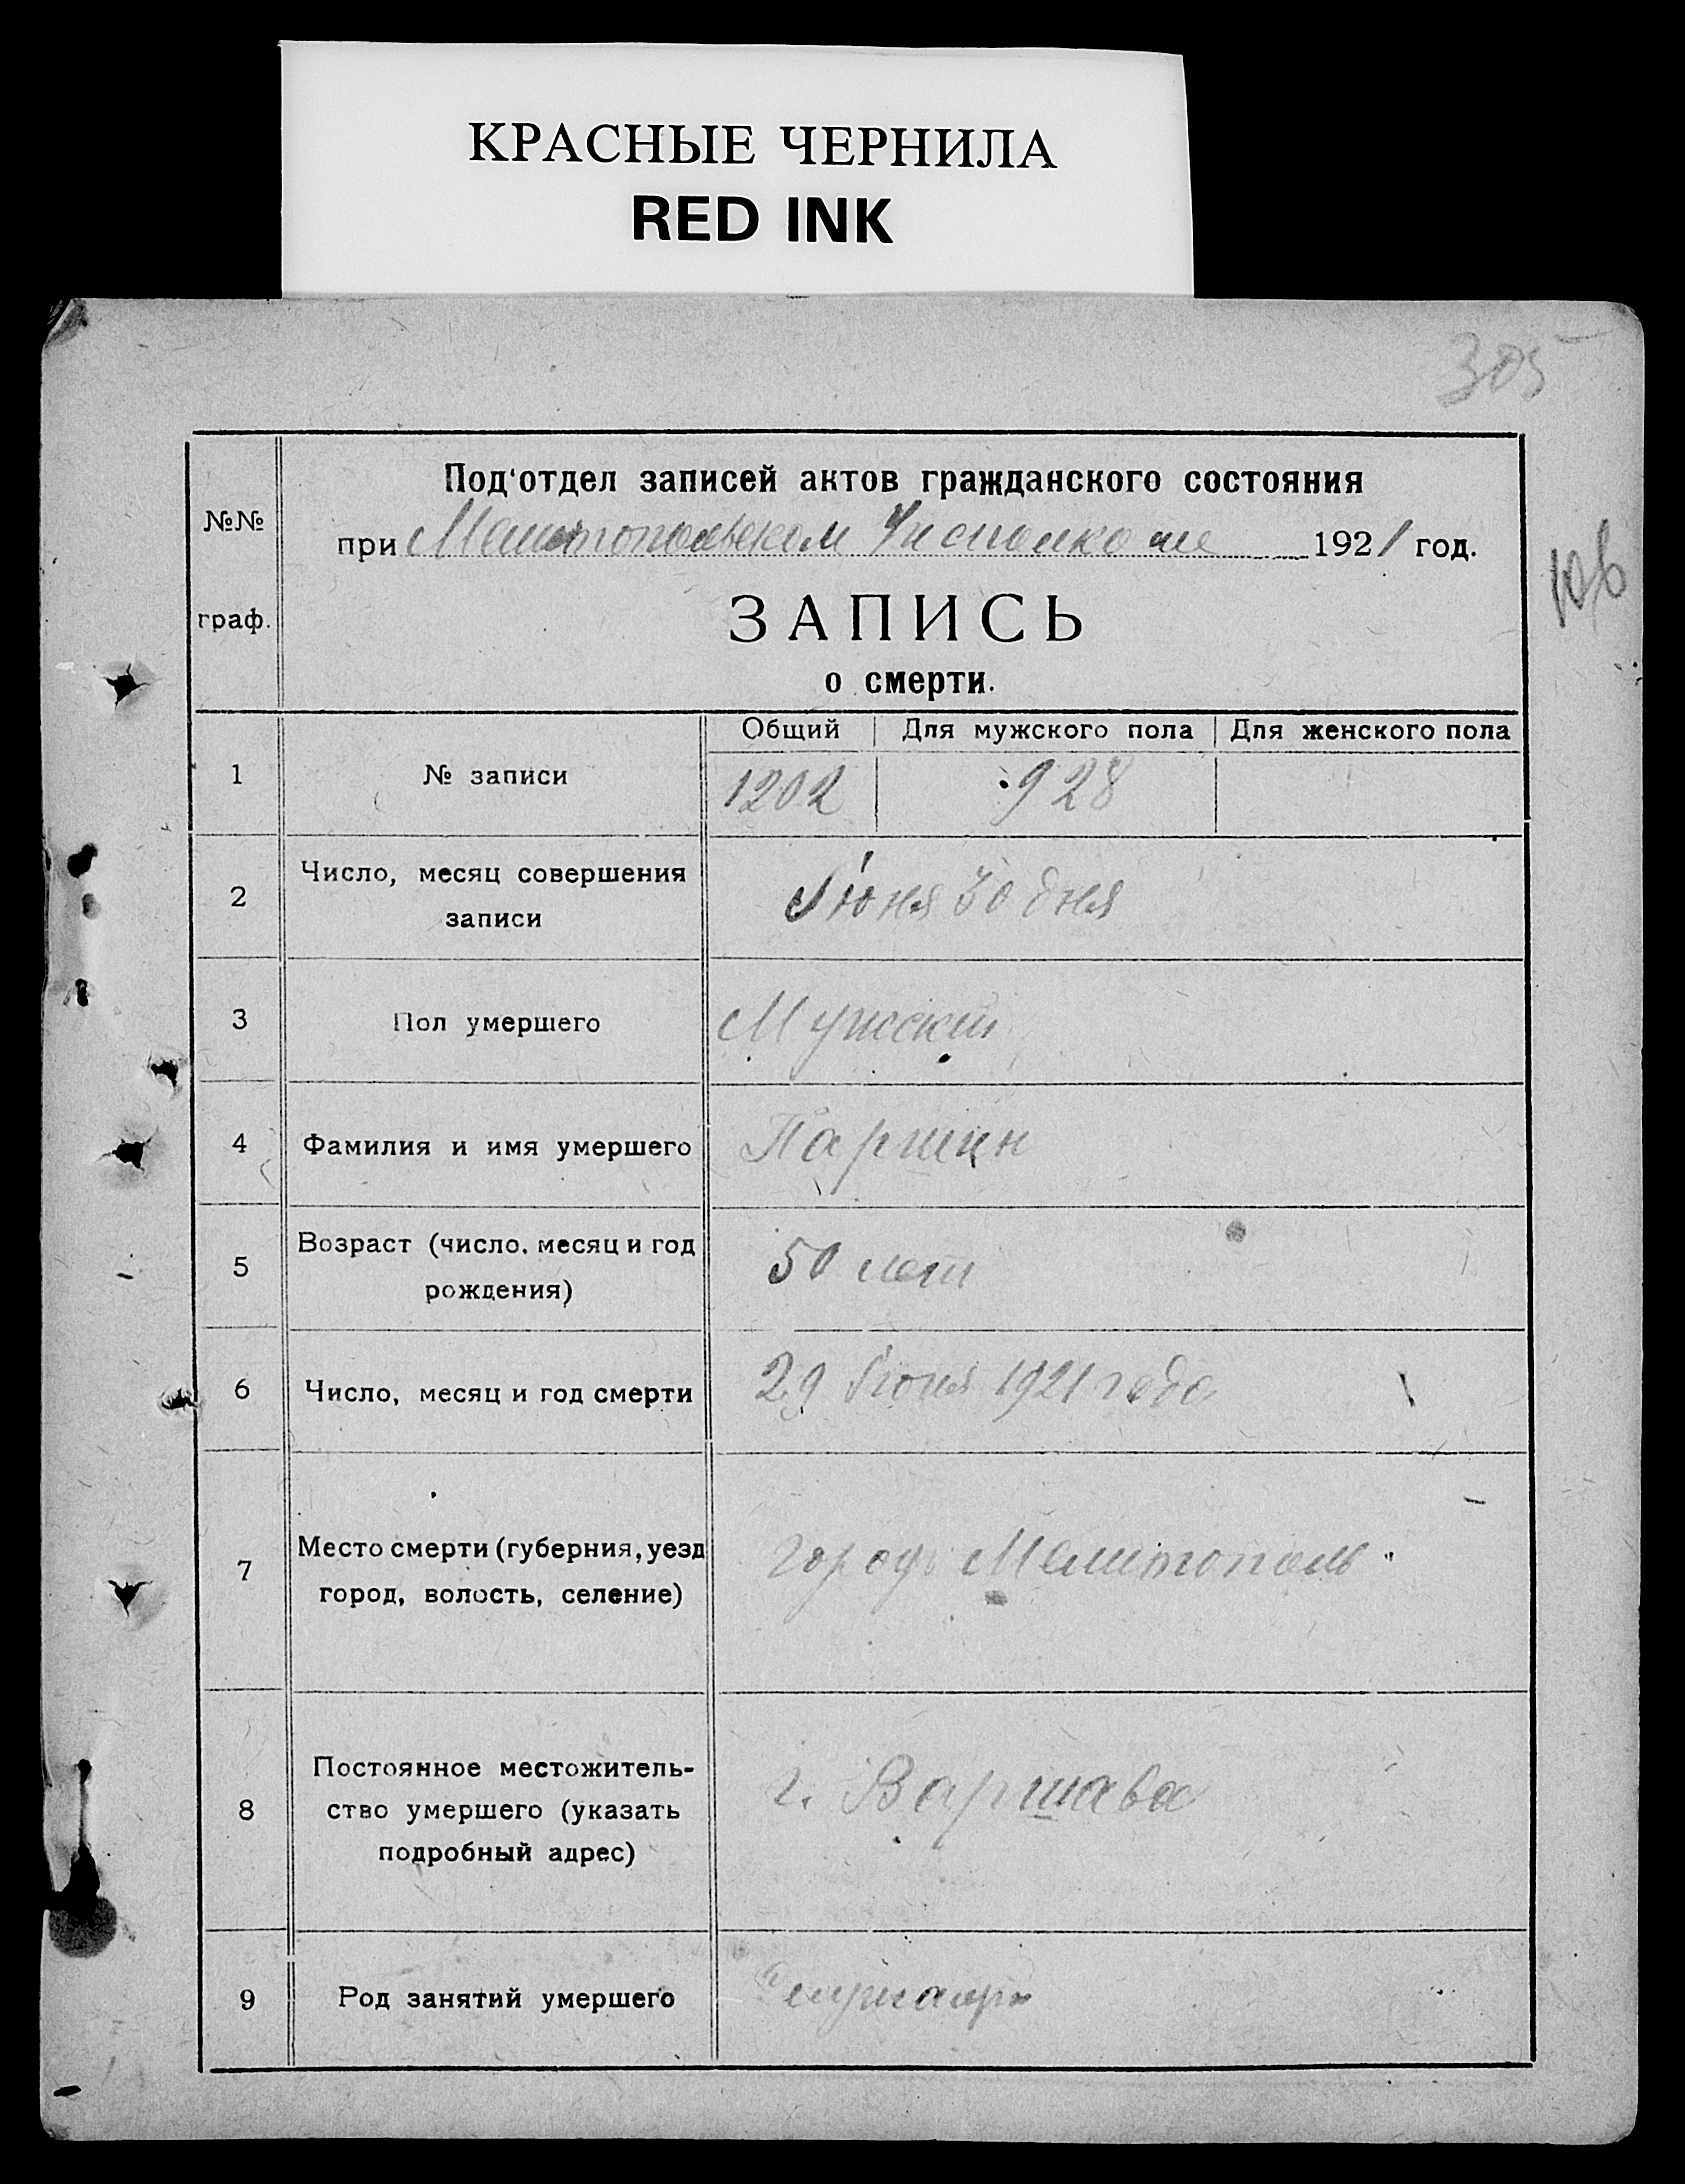 КРАСНЫЕ ЧЕРНИЛА
RED INK
305
№№
граф.
Под'отдел записей актов гражданского состояния
при Мелитопольском Исполкоме 1921 год.
ЗАПИСЬ
о смерти.
Общий Для мужского пола Для женского пола
1 № записи 1202 928
2 Число, месяц совершения
записи
Июня 30 дня
3 Пол умершего Мужской
4 Фамилия и имя умершего Паршин
5 Возраст (число, месяц и год
рождения)
50 лет
6 Число, месяц и год смерти 29 Июня 1921 года
7 Место смерти (губерния, уезд
город, волость, селение)
город Мелитополь
8 Постоянное местожитель-
ство умершего (указать
подробный адрес)
г. Варшава
9 Род занятий умершего